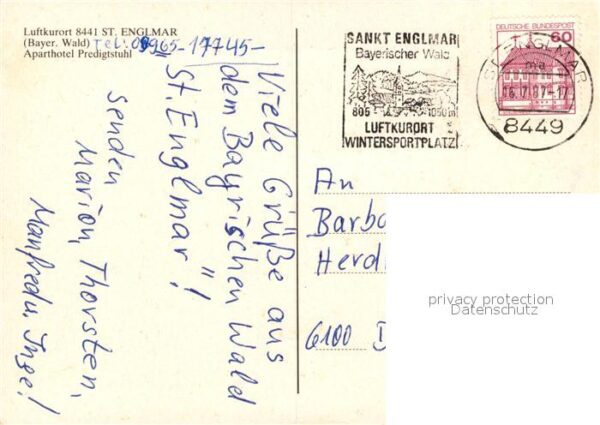 Luftkurort 8441 ST. ENGLMAR
(Bayer. Wald) Tel: 09965-17745-
Aparthotel Predigtstuhl
Viele Grüße aus
dem Bayrischen Wald
St. Englmar"!
senden
Marion, Thorsten,
Manfred u. Inge!
SANKT ENGLMAR
Bayerischer Wald
805 - 1050 m
LUFTKURORT
WINTERSPORTPLATZ
DEUTSCHE BUNDESPOST
60
ST. ENGLMAR
ma
16.7.87-17
8449
An
Barba
Herd
6100 D
privacy protection
Datenschutz